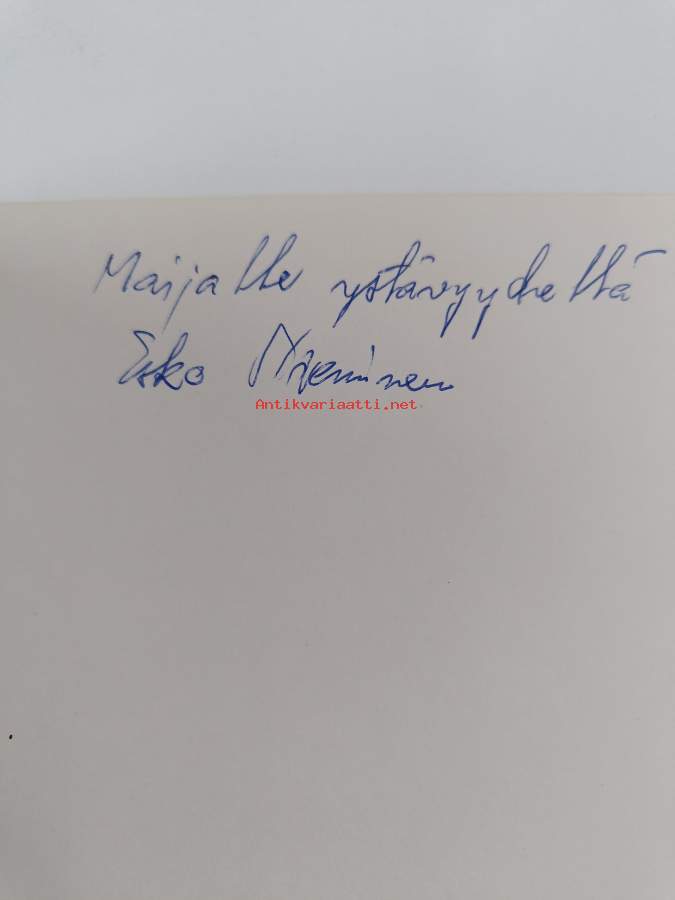 Maijalle ystävyydellä
Esko Nieminen
Antikvariaatti.net